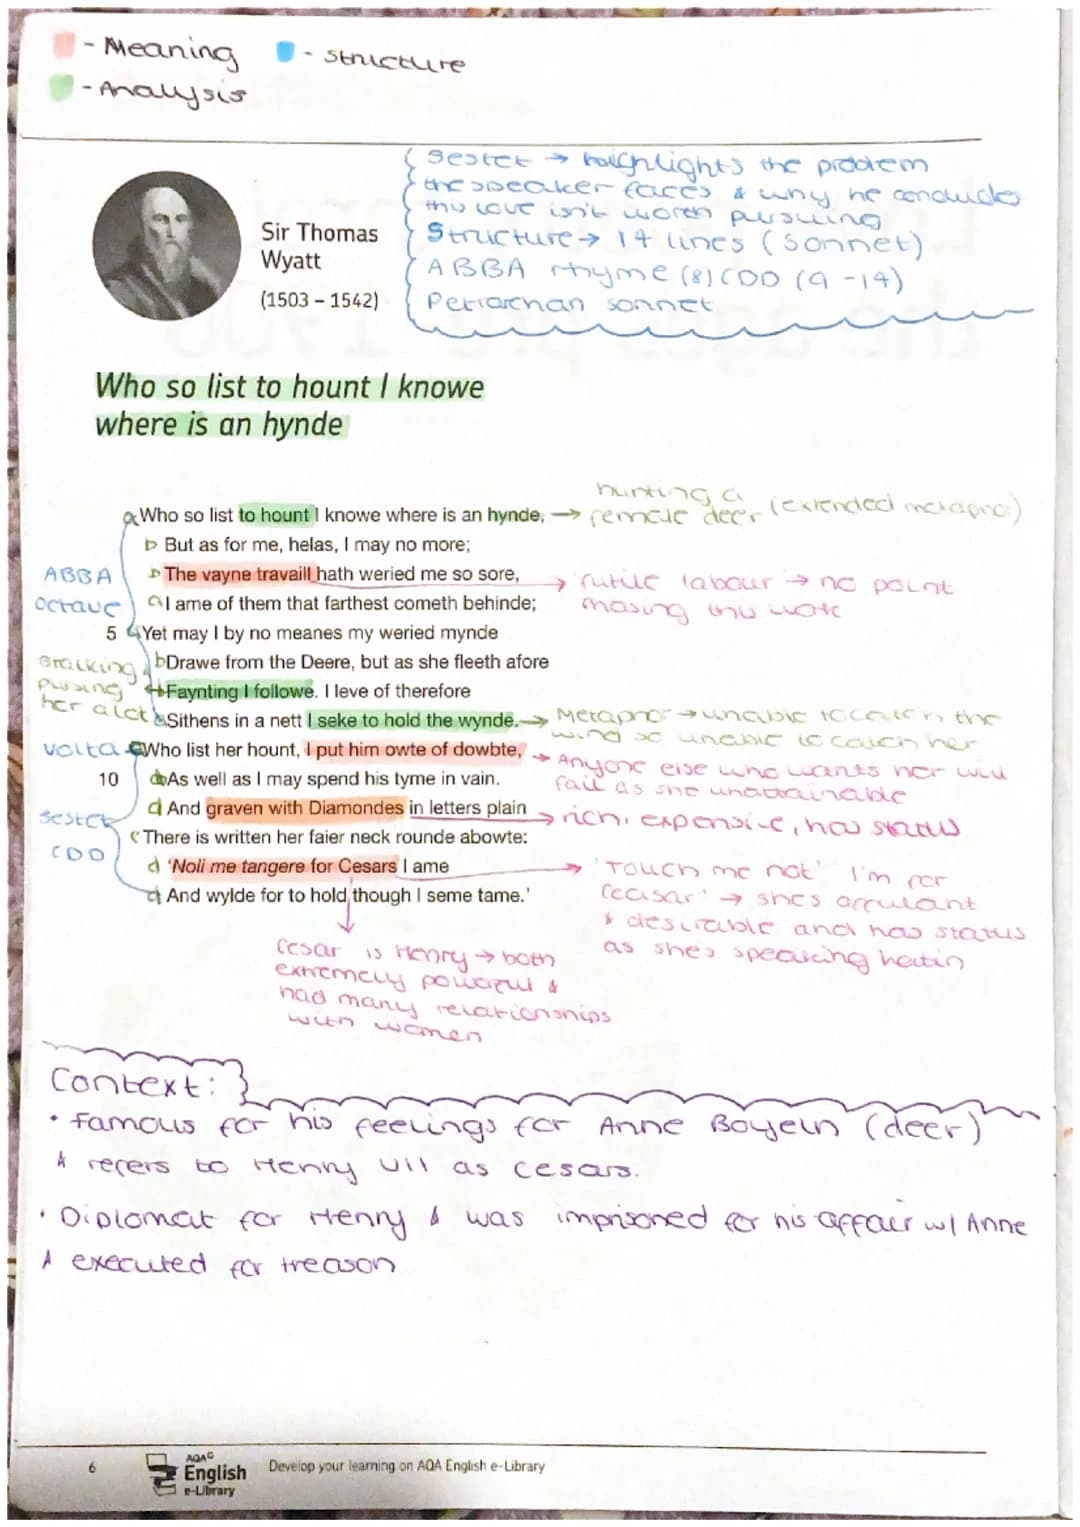 - Meaning
- Structure
- Analysis
Sestet → highlights the problem
the speaker faces & why he concludes
this love isn't worth pursuing
Structure → 14 lines (sonnet)
ABBA rhyme (8) CDD (9-14)
Petrarchan sonnet
Sir Thomas
Wyatt
(1503 – 1542)
Who so list to hount I knowe
where is an hynde
a Who so list to hount I knowe where is an hynde, → hunting a female deer (extended metaphor)
b But as for me, helas, I may no more;
ABBA
octave
b The vayne travaill hath weried me so sore, → futile labour → no point
chasing this
a I ame of them that farthest cometh behinde;
5 a Yet may I by no meanes my weried mynde
b Drawe from the Deere, but as she fleeth afore
stalking
pursing
her alot
Faynting I followe. I leve of therefore
a Sithens in a nett I seke to hold the wynde. → Metaphor → unable to catch the
wind so unable to catch her
volta
c Who list her hount, I put him owte of dowbte, → Anyone else who wants her will
fail as she unattainable
10 d As well as I may spend his tyme in vain.
d And graven with Diamondes in letters plain → rich, expensive, has status
sestet
CDD
c There is written her faier neck rounde abowte:
d 'Noli me tangere for Cesars I ame → 'Touch me not' I'm for
ceasar' → shes
& desirable and has status
as shes speaking
d And wylde for to hold though I seme tame.'
Cesar is Henry → both
extremely powerful &
had many relationships
with women
Context:
• famous for his feelings for Anne Boyeln (deer)
& refers to Henry VII as cesars.
• Diplomat for Henry & was imprisoned for his affair w/ Anne
& executed for treason
6
AQA
English
e-Library
Develop your learning on AQA English e-Library